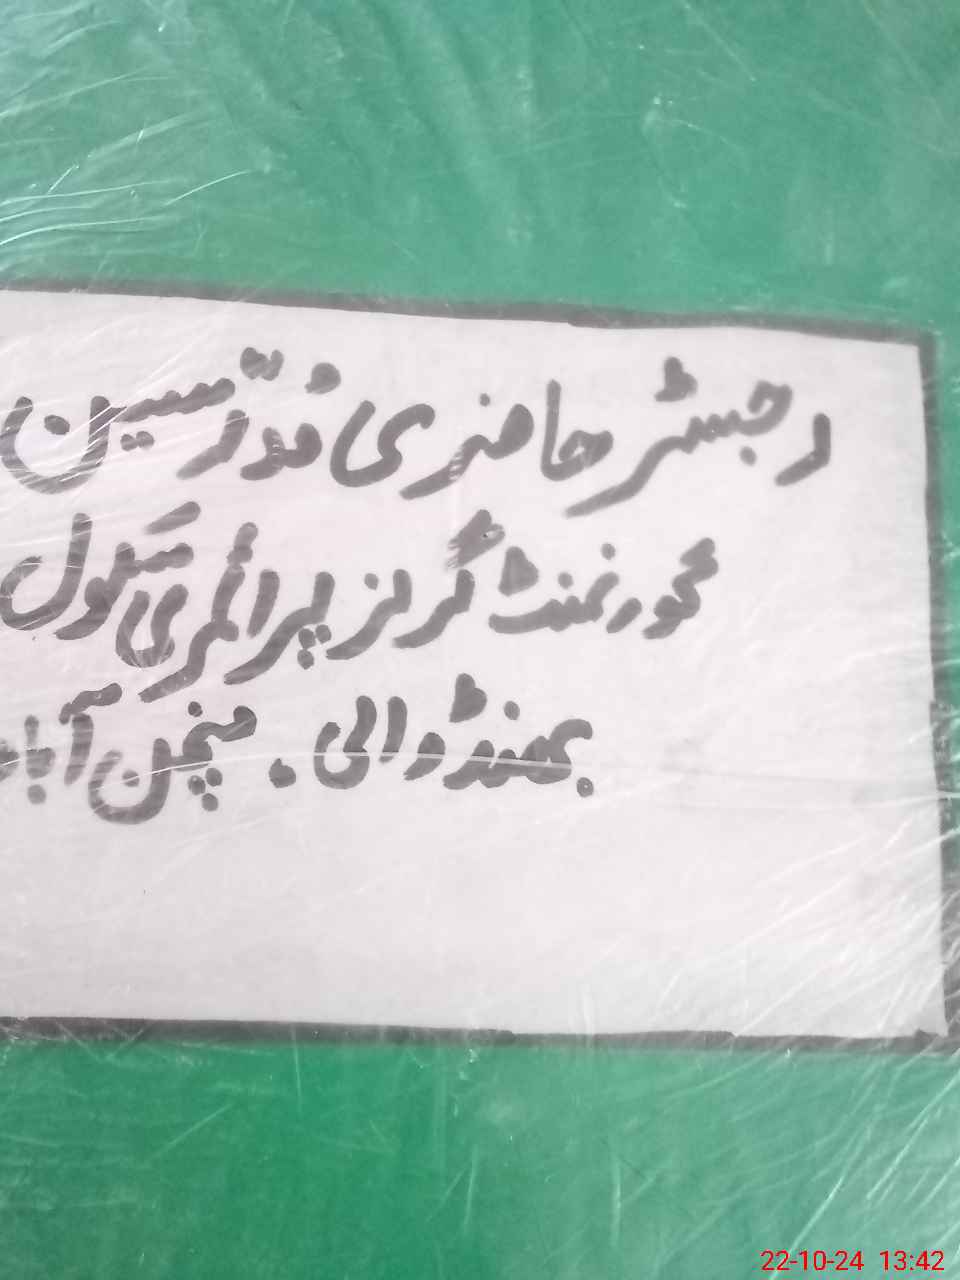 رجسٹر حاضری مدرسین
گورنمنٹ گرلز پرائمری سکول
بھنڈوالی۔ منچن آباد
22-10-24 13:42